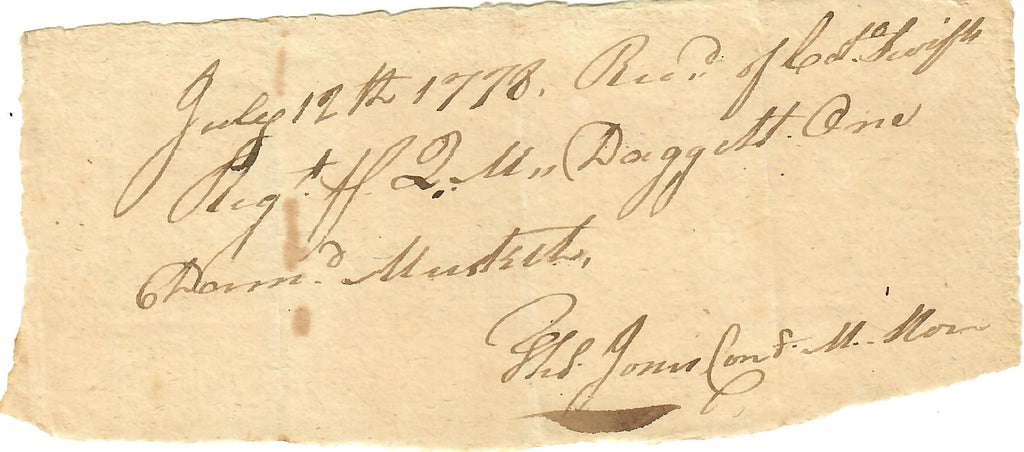 July 12th 1778. Recd. of Col. Swift
Regt. pr. Q. Mr. Daggett. One
Damd. Musket.
Ths. Jones Cond. M.